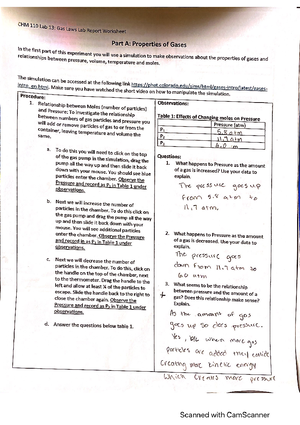 CHM 110 Lab 13: Gas Laws Lab Report Worksheet
Part A: Properties of Gases
In the first part of this experiment you will use a simulation to make observations about the properties of gases and
relationships between pressure, volume, temperature and moles.
The simulation can be accessed at the following link https://phet.colorado.edu/sims/html/gases-intro/latest/gases-
intro_en.html. Make sure you have watched the short video on how to manipulate the simulation.
Procedure:
1. Relationship between Moles (number of particles)
and Pressure: To investigate the relationship
between numbers of gas particles and pressure you
will add or remove particles of gas to or from the
container, leaving temperature and volume the
same.
a. To do this you will need to click on the top
of the gas pump in the simulation, drag the
pump all the way up and then slide it back
down with your mouse. You should see blue
particles enter the chamber. Observe the
Pressure and record as P₁ in Table 1 under
observations.
b. Next we will increase the number of
particles in the chamber. To do this click on
the gas pump and drag the pump all the way
up and then slide it back down with your
mouse. You will see additional particles
enter the chamber. Observe the Pressure
and record as P₂ in Table 1 under
observations.
c. Next we will decrease the number of
particles in the chamber. To do this, click on
the handle on the top of the chamber, next
to the thermometer. Drag the handle to the
left and allow at least ¼ of the particles to
escape. Slide the handle back to the right to
close the chamber again. Observe the
Pressure and record as P₃ in Table 1 under
observations.
d. Answer the questions below table 1.
Observations:
Table 1: Effects of Changing moles on Pressure
Pressure (atm)
P₁ 5.8 atm
P₂ 11.7 atm
P₃ 6.0 atm
Questions:
1. What happens to Pressure as the amount
of a gas is increased? Use your data to
explain.
The pressure goes up
from 5.8 atm to
11.7 atm
2. What happens to Pressure as the amount
of a gas is decreased. Use your data to
explain.
The pressure goes
down from 11.7 atm to
6.0 atm
3. What seems to be the relationship
between pressure and the amount of a
gas? Does this relationship make sense?
Explain.
As the amount of gas
goes up so does pressure.
Yes, b/c when more gas
particles are added they collide
creating more kinetic energy
which creates more pressure
Scanned with CamScanner